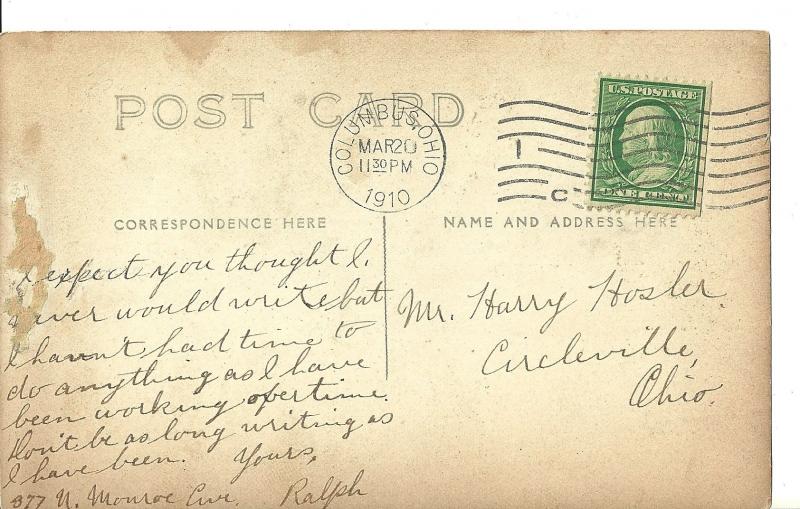 POST CARD
COLUMBUS, OHIO
MAR 20
11 30 PM
1910
1
C
U.S. POSTAGE
ONE CENT
CORRESPONDENCE HERE
NAME AND ADDRESS HERE
I expect you thought I.
never would write but
I havn't had time to
do anything as I have
been working overtime.
Don't be as long writing as
I have been. Yours,
377 N. Monroe Ave. Ralph
Mr. Harry Hosler.
Circleville,
Ohio.